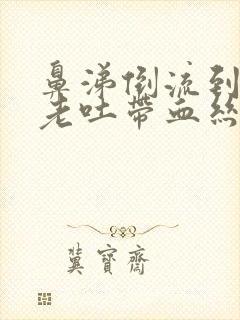 鼻涕倒流到
老吐带血絲
冀寶齋